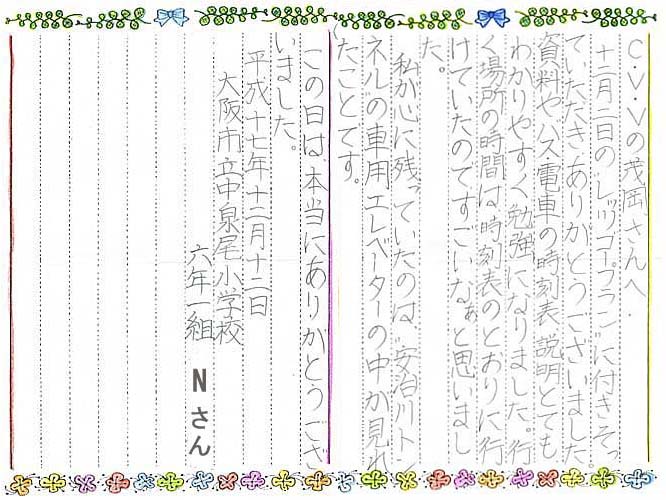 CV・Vの茂岡さんへ.
十二月二日の"レッツゴープラン"に付きそっ
ていただきありがとうございました
資料やバス・電車の時刻表、説明とても
わかりやすく勉強になりました。行
く場所の時間は時刻表のとおりに行
けていたのですごいなぁと思いまし
た。
私が心に残っていたのは、安治川トン
ネルの車用エレベーターの中が見れ
たことです。
この日は、本当にありがとうござ
いました。
平成十七年十二月十二日
大阪市立中泉尾小学校
六年一組 Nさん